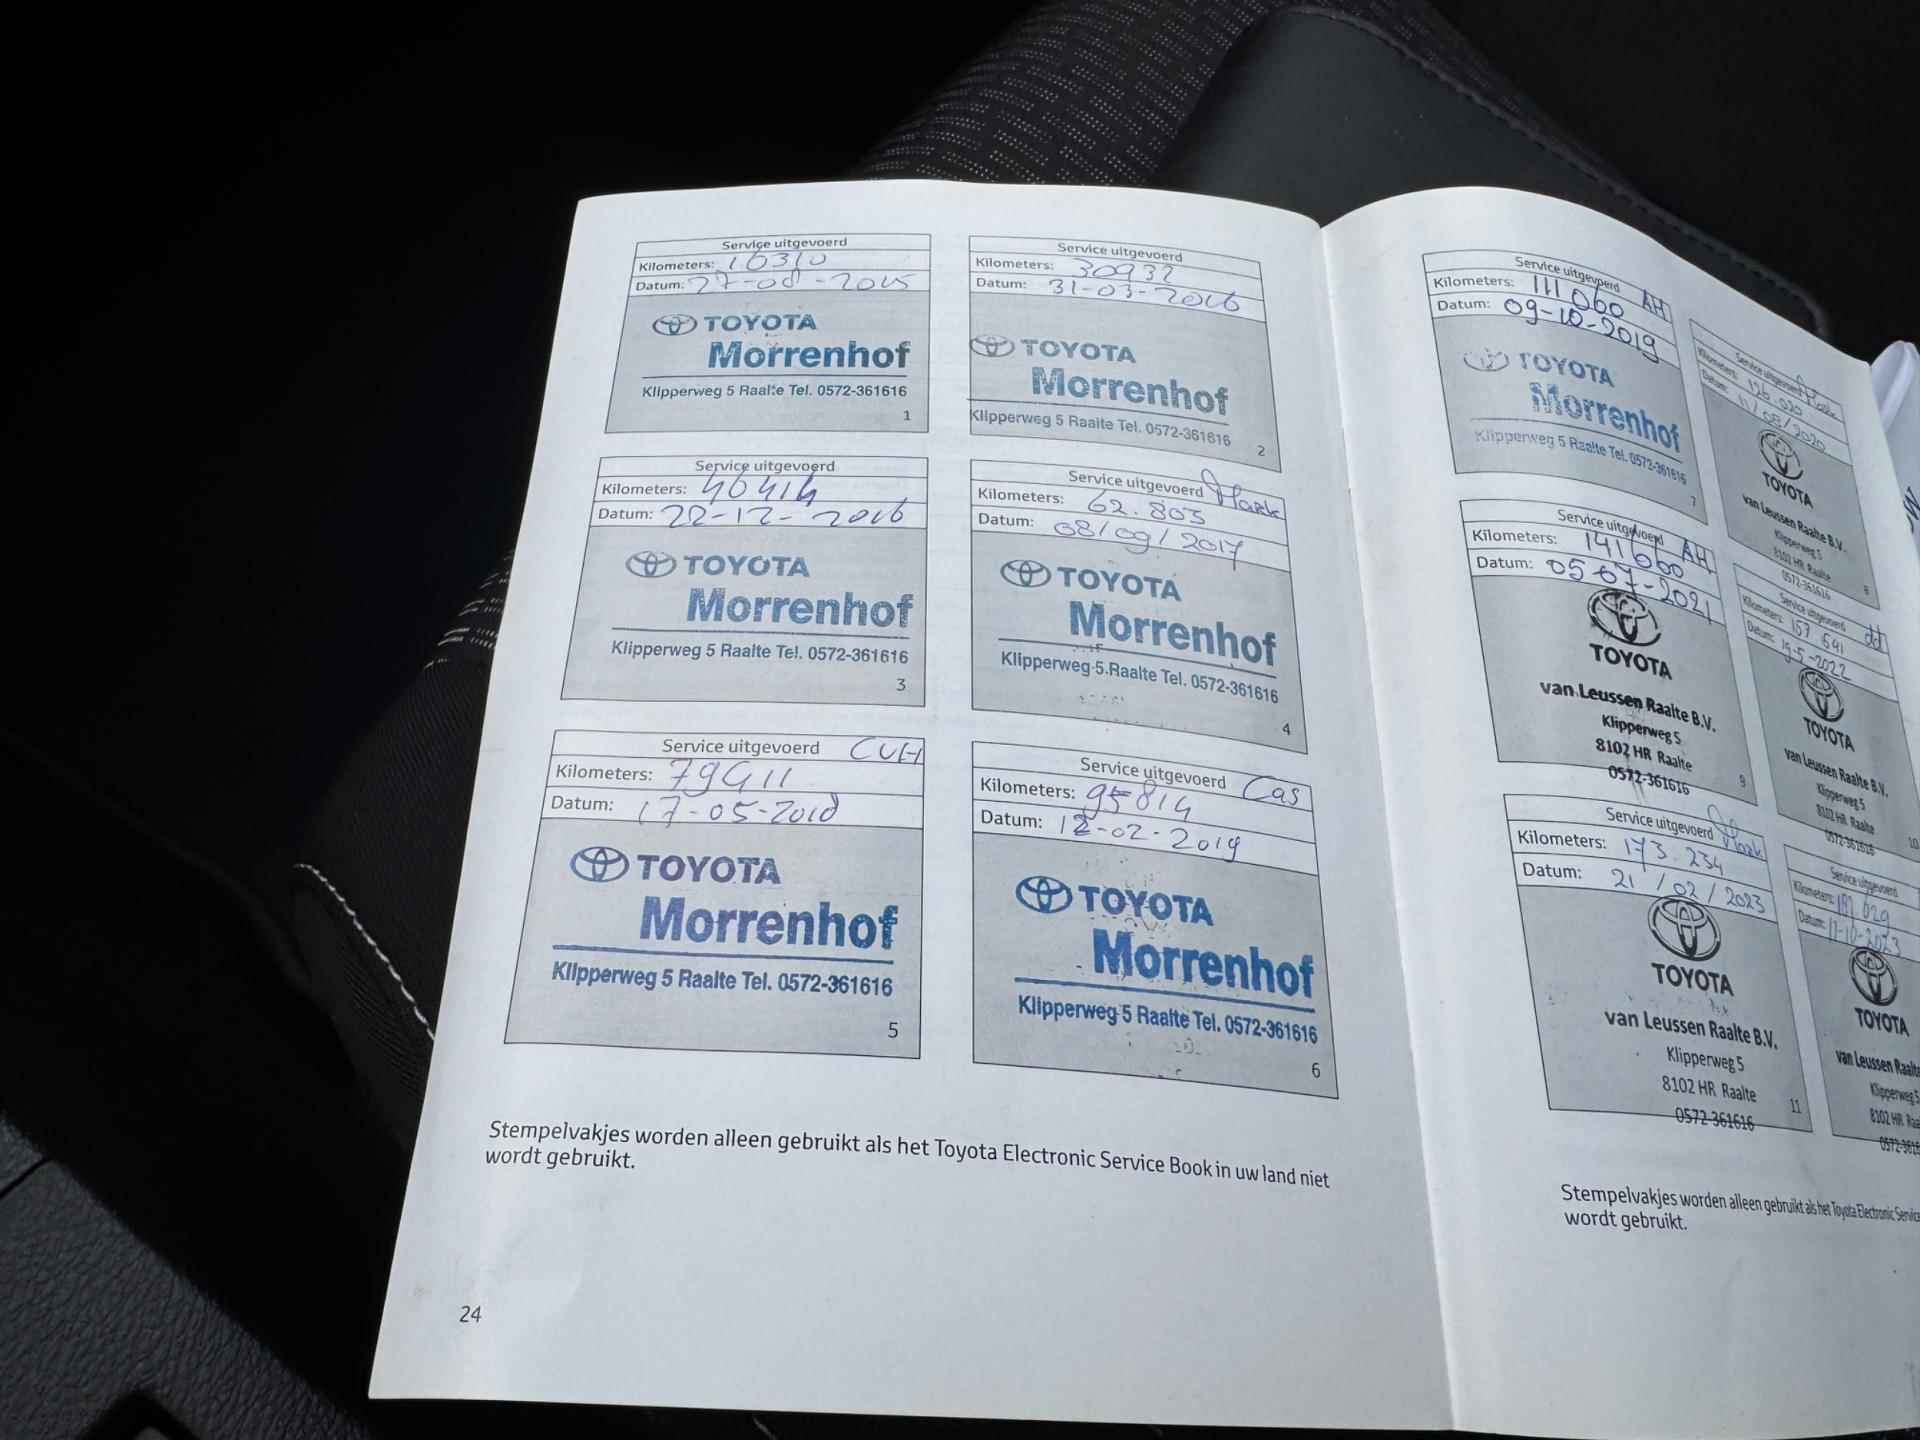 Service uitgevoerd
Kilometers: 16310
Datum: 27-08-2015
TOYOTA
Morrenhof
Klipperweg 5 Raalte Tel. 0572-361616
1
Service uitgevoerd
Kilometers: 30932
Datum: 31-03-2016
TOYOTA
Morrenhof
Klipperweg 5 Raalte Tel. 0572-361616
2
Service uitgevoerd
Kilometers: 46414
Datum: 22-12-2016
TOYOTA
Morrenhof
Klipperweg 5 Raalte Tel. 0572-361616
3
Service uitgevoerd
Kilometers: 62.803
Datum: 08/09/2017
TOYOTA
Morrenhof
Klipperweg 5 Raalte Tel. 0572-361616
4
Service uitgevoerd CVH
Kilometers: 79911
Datum: 17-05-2018
TOYOTA
Morrenhof
Klipperweg 5 Raalte Tel. 0572-361616
5
Service uitgevoerd Cas
Kilometers: 95814
Datum: 12-02-2019
TOYOTA
Morrenhof
Klipperweg 5 Raalte Tel. 0572-361616
6
Stempelvakjes worden alleen gebruikt als het Toyota Electronic Service Book in uw land niet
wordt gebruikt.
24
Service uitgevoerd
Kilometers: 111060 AH
Datum: 09-10-2019
TOYOTA
Morrenhof
Klipperweg 5 Raalte Tel. 0572-361616
7
Service uitgevoerd
Kilometers: 126.020
Datum: 11/08/2020
TOYOTA
van Leussen Raalte B.V.
Klipperweg 5
8102 HR Raalte
0572-361616
8
Service uitgevoerd AH
Kilometers: 141660
Datum: 05-07-2021
TOYOTA
van Leussen Raalte B.V.
Klipperweg 5
8102 HR Raalte
0572-361616
9
Service uitgevoerd
Kilometers: 157 641
Datum: 19-5-2022
TOYOTA
van Leussen Raalte B.V.
Klipperweg 5
8102 HR Raalte
0572-361616
10
Service uitgevoerd
Kilometers: 173.234
Datum: 21/02/2023
TOYOTA
van Leussen Raalte B.V.
Klipperweg 5
8102 HR Raalte
0572-361616
11
Service uitgevoerd
Kilometers:
Datum: 17-10-2023
TOYOTA
van Leussen Raalte
Klipperweg 5
8102 HR Raa
0572-3616
Stempelvakjes worden alleen gebruikt als het Toyota Electronic Service
wordt gebruikt.